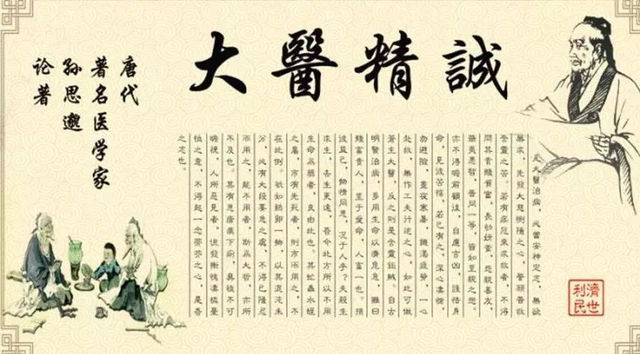 大醫精誠
唐代
著名医学家
孙思邈
论著
凡大醫治病,必當安神定志,無欲
無求,先發大慈惻隱之心,誓願普救
含靈之苦。若有疾厄來求救者,不得
問其貴賤貧富,長幼妍蚩,怨親善友,
華夷愚智,普同一等,皆如至親之想。
亦不得瞻前顧後,自慮吉凶,護惜身
命。見彼苦惱,若己有之,深心凄愴,
勿避險,晝夜寒暑,飢渴疲勞,一心
赴救,無作工夫形迹之心。如此可做
蒼生大醫,反之則是含靈鉅賊。自古
明賢治病,多用生命以濟危急,雖曰
賤畜貴人,至于愛命,人畜一也。損
彼益己,物情同患,況于人乎?夫殺生
求生,去生更遠。吾今此方所以不用
生命為藥者,良由此也。其虻蟲水蛭
之屬,市有先死者,則市而用之,不
在此例。祇如雞卵一物,以其混沌未
分,必有大段要急之處,不得已隱忍
而用之。能不用者,斯為大哲,亦所
不及也。其有患瘡痍下痢,臭穢不可
瞻視,人所惡見者,但發慚愧凄憐憂
恤之意,不得起一念蒂芥之心,是吾
之志也。
濟世
利民